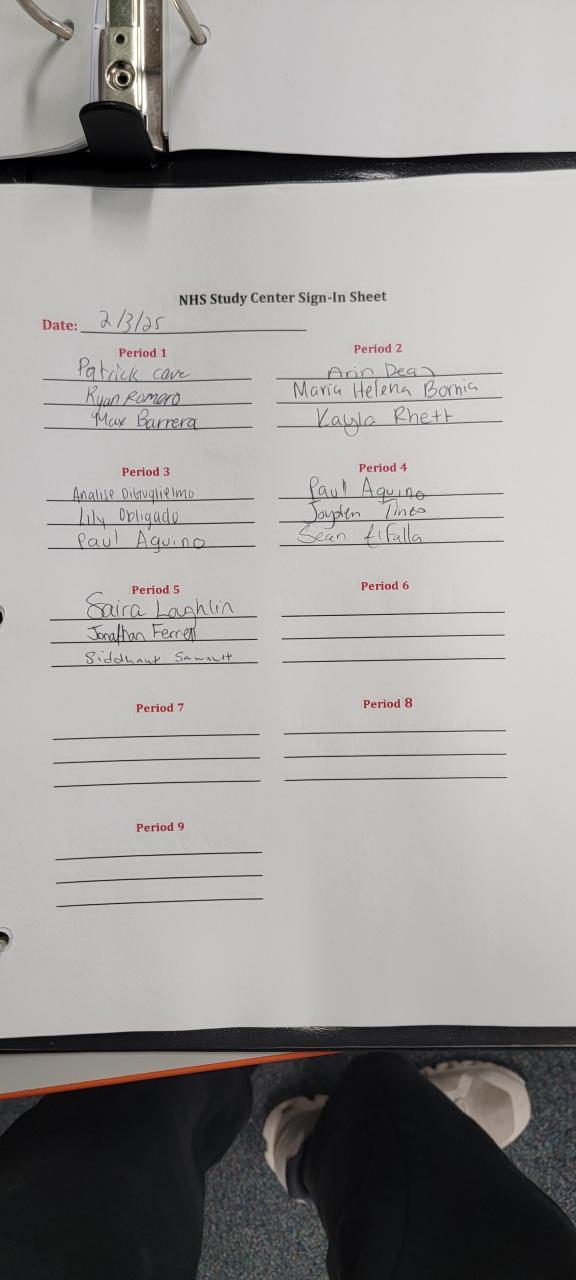 NHS Study Center Sign-In Sheet
Date: 2/3/25
Period 1
Patrick cave
Ryan Romero
Max Barrera
Period 2
Arin Dean
Maria Helena Bornia
Kayla Rhett
Period 3
Analise DiGuglielmo
Lily Obligado
Paul Aquino
Period 4
Paul Aquino
Jayden Tineo
Sean Elfalla
Period 5
Saira Loughlin
Jonathan Ferrell
Siddhant
Period 6
Period 7
Period 8
Period 9